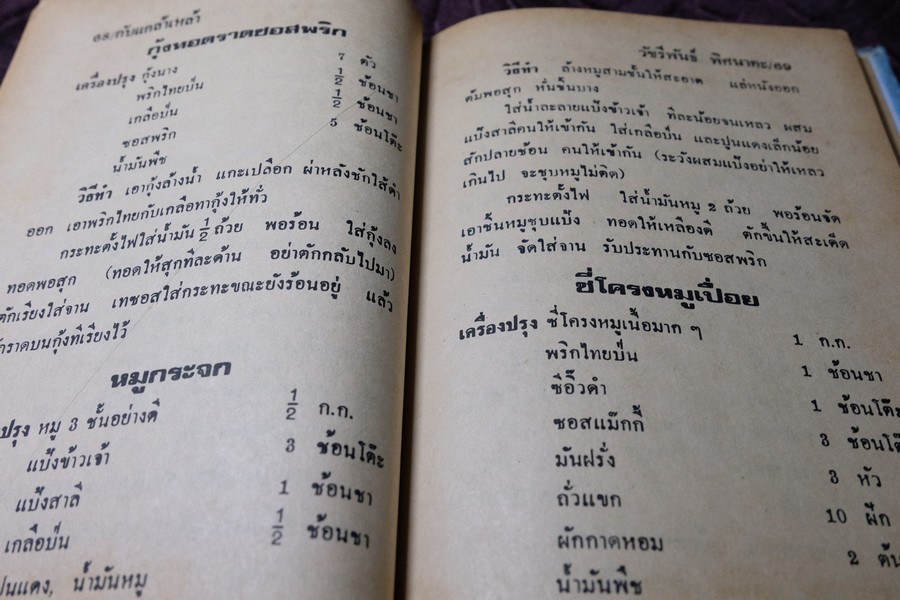 ๖๘/กับแกล้มเหล้า
กุ้งทอดราดซอสพริก
เครื่องปรุง กุ้งนาง 7 ตัว
พริกไทยป่น 1/2 ช้อนชา
เกลือป่น 1/2 ช้อนชา
ซอสพริก 5 ช้อนโต๊ะ
น้ำมันพืช
วิธีทำ เอากุ้งล้างน้ำ แกะเปลือก ผ่าหลังชักไส้ดำ
ออก เอาพริกไทยกับเกลือทากุ้งให้ทั่ว
กระทะตั้งไฟใส่น้ำมัน 1/2 ถ้วย พอร้อน ใส่กุ้งลง
ทอดพอสุก (ทอดให้สุกทีละด้าน อย่าตักกลับไปมา)
ตักเรียงใส่จาน เทซอสใส่กระทะขณะยังร้อนอยู่ แล้ว
ราดบนกุ้งที่เรียงไว้
หมูกระจก
ปรุง หมู 3 ชั้นอย่างดี 1/2 ก.ก.
แป้งข้าวเจ้า 3 ช้อนโต๊ะ
แป้งสาลี 1 ช้อนชา
เกลือป่น 1/2 ช้อนชา
ปูนแดง, น้ำมันหมู
วัชรีพันธุ์ พิศนาคะ/๖๙
วิธีทำ ล้างหมูสามชั้นให้สะอาด แล่หนังออก
ต้มพอสุก หั่นชิ้นบาง
ใส่น้ำละลายแป้งข้าวเจ้า ทีละน้อยจนเหลว ผสม
แป้งสาลีคนให้เข้ากัน ใส่เกลือป่น และปูนแดงเล็กน้อย
สักปลายช้อน คนให้เข้ากัน (ระวังผสมแป้งอย่าให้เหลว
เกินไป จะชุบหมูไม่ติด)
กระทะตั้งไฟ ใส่น้ำมันหมู 2 ถ้วย พอร้อนจัด
เอาชิ้นหมูชุบแป้ง ทอดให้เหลืองดี ตักขึ้นให้สะเด็ด
น้ำมัน จัดใส่จาน รับประทานกับซอสพริก
ซี่โครงหมูเปื่อย
เครื่องปรุง ซี่โครงหมูเนื้อมาก ๆ 1 ก.ก.
พริกไทยป่น 1 ช้อนชา
ซีอิ๊วดำ 1 ช้อนโต๊ะ
ซอสแม๊กกี้ 3 ช้อนโต๊ะ
มันฝรั่ง 3 หัว
ถั่วแขก 10 ฝัก
ผักกาดหอม 2 ต้น
น้ำมันพืช